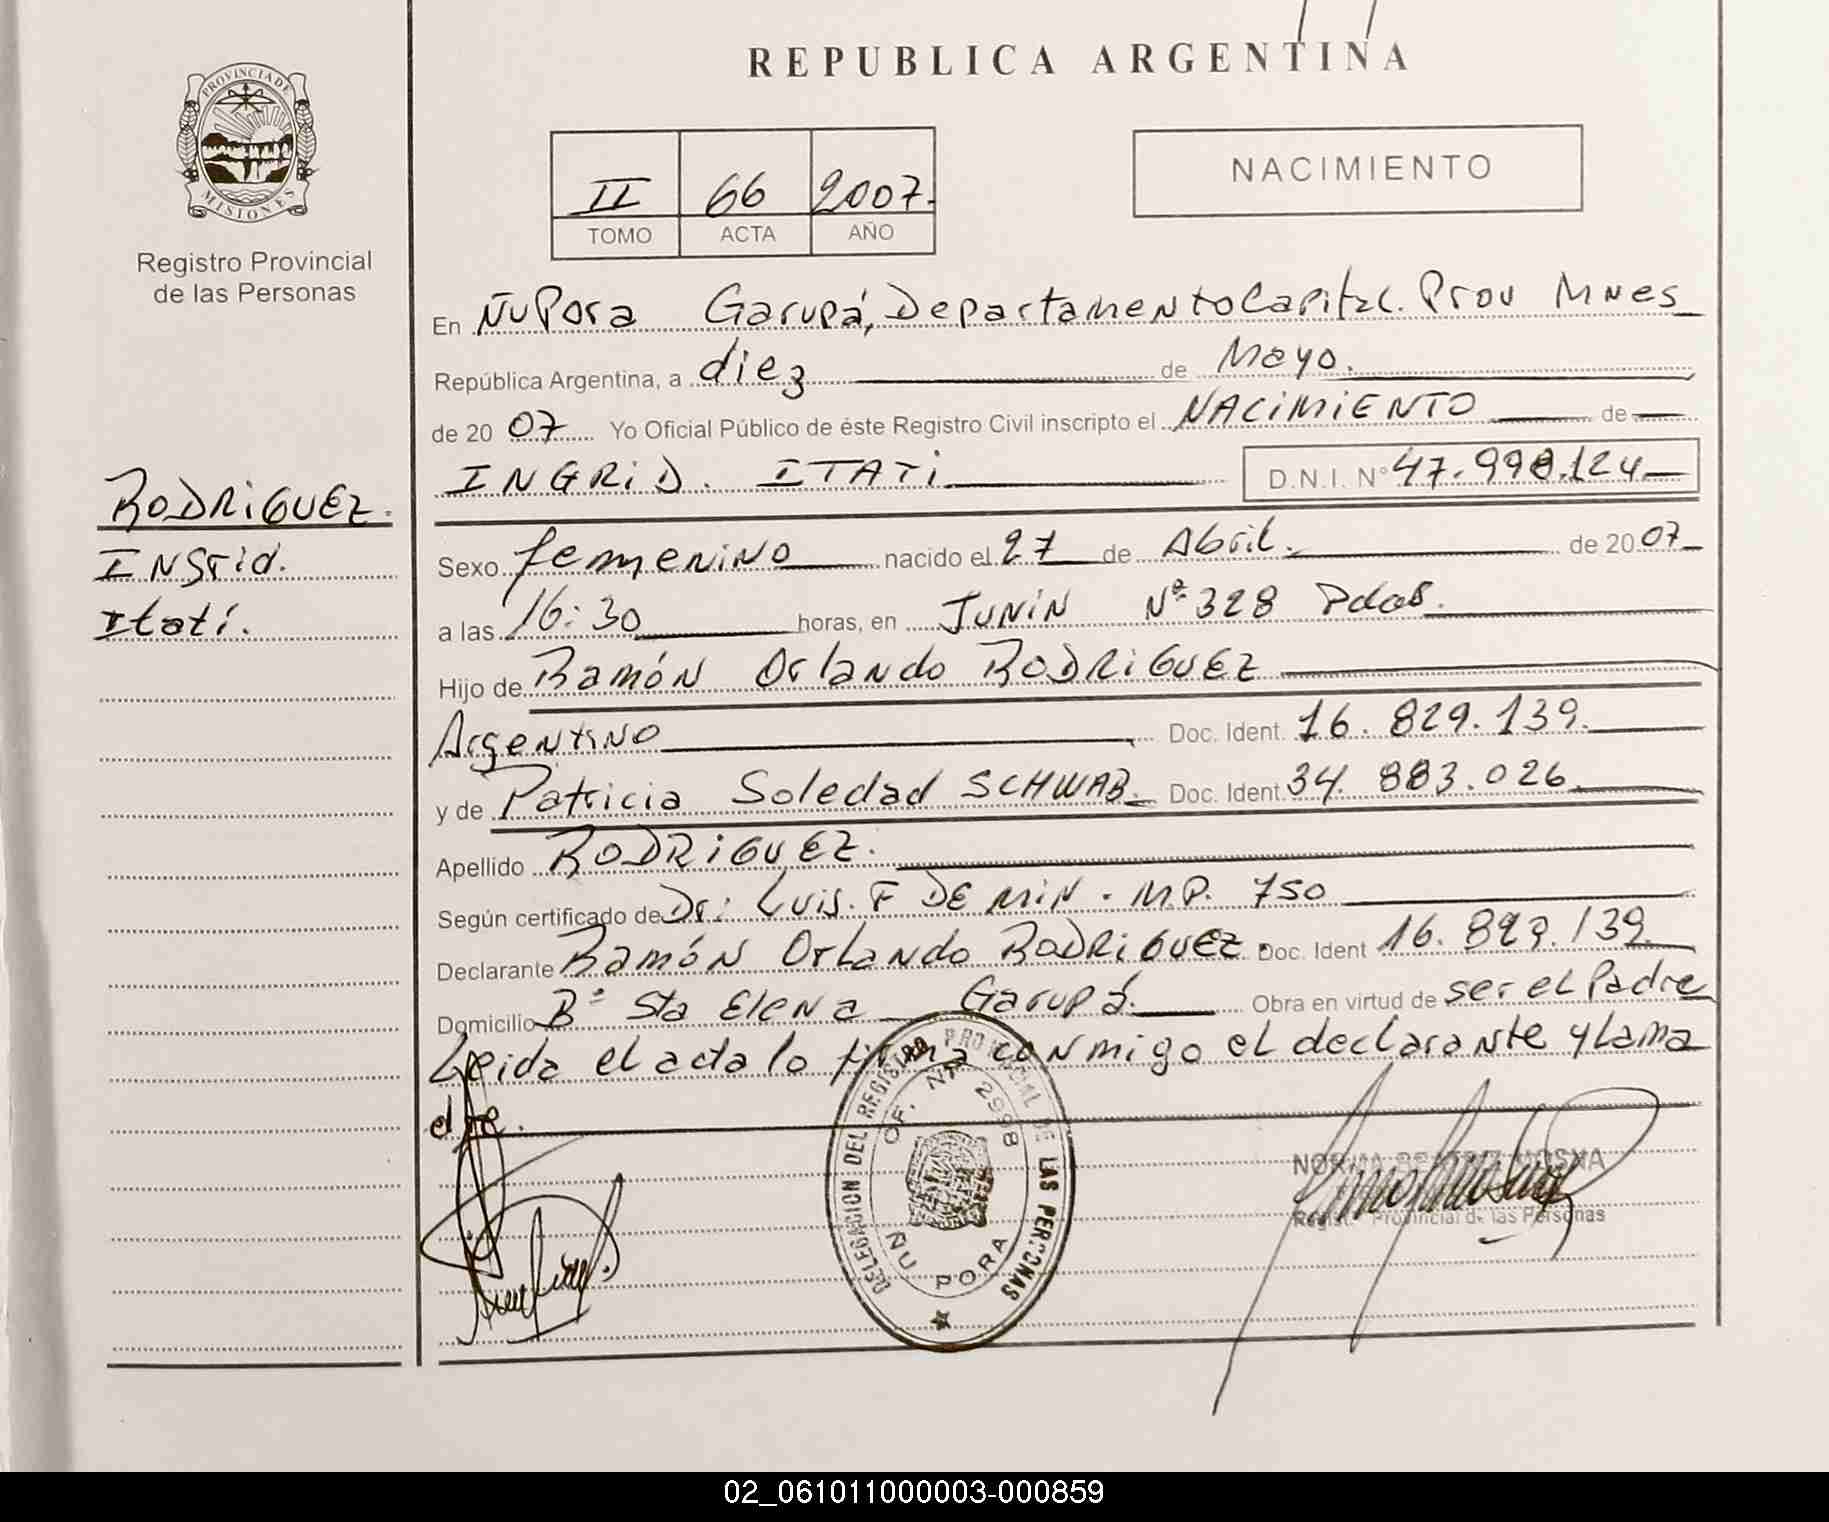 REPUBLICA ARGENTINA
PROVINCIA DE MISIONES
Registro Provincial
de las Personas
II 66 2007.
TOMO ACTA AÑO
NACIMIENTO
En Ñu Pora Garupá, Departamento Capital. Prov Mnes
República Argentina, a diez de Mayo.
de 20 07 Yo Oficial Público de éste Registro Civil inscripto el NACIMIENTO de
INGRID. ITATI D.N.I. Nº 47.990.124
RODRIGUEZ.
INGrid.
Itatí.
Sexo femenino nacido el 27 de Abril. de 20 07
a las 16:30 horas, en JUNIN Nº 328 Pdas.
Hijo de Ramón Orlando RODRIGUEZ
Argentino Doc. Ident. 16.829.139.
y de Patricia Soledad SCHWAB Doc. Ident. 34.883.026
Apellido RODRIGUEZ.
Según certificado de Dr: Luis. F DE MIN. M.P. 750
Declarante Ramón Orlando RODRIGUEZ. Doc. Ident 16.829.139
Domicilio Bº Sta Elena Garupá. Obra en virtud de ser el Padre
Leida el acta lo firma conmigo el declarante y la ma
dre.
DELEGACION DEL REGISTRO PROVINCIAL DE LAS PERSONAS
OF. Nº 2998
ÑU PORA
NORMA BEATRIZ
Registro Provincial de las Personas
02_061011000003-000859